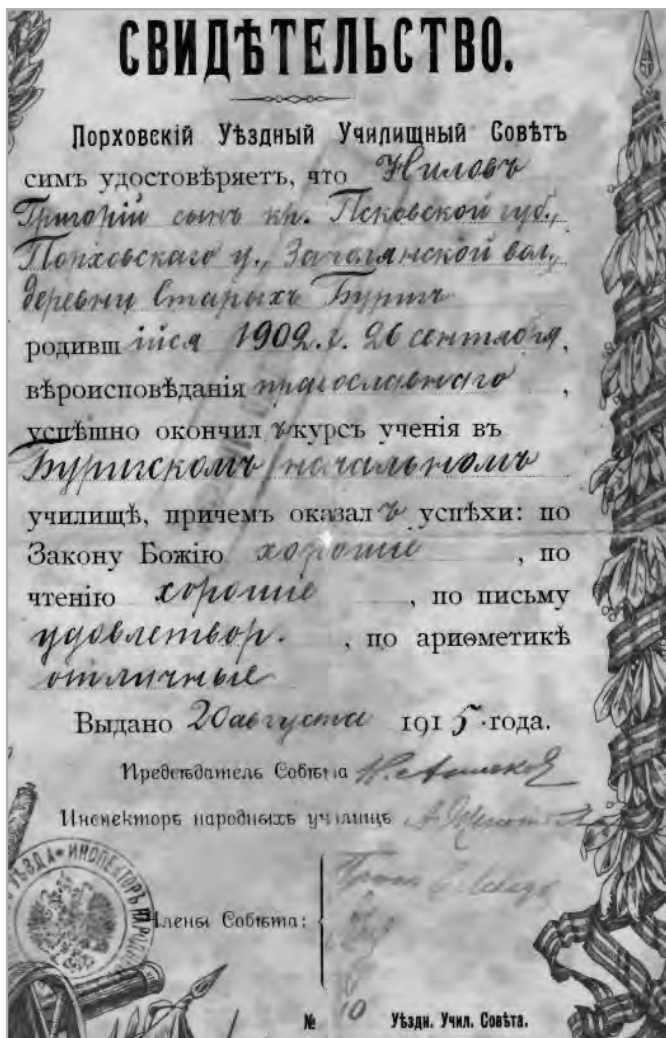 СВИДѢТЕЛЬСТВО.
Порховскій Уѣздный Училищный Совѣтъ
симъ удостовѣряетъ, что Ниловъ
Григорій сынъ кр. Псковской губ.,
Порховскаго у., Заполянской вол.
деревни Старыхъ Буригъ
родившійся 1902.г. 26 сентября,
вѣроисповѣданія православнаго,
успѣшно окончилъ курсъ ученія въ
Буригскомъ начальномъ
училищѣ, причемъ оказалъ успѣхи: по
Закону Божію хорошіе, по
чтенію хорошіе, по письму
удовлетвор., по ариѳметикѣ
отличные
Выдано 20 августа 1915 года.
Предсѣдатель Совѣта
Инспекторъ народныхъ училищъ
УѢЗДА * ИНСПЕКТОРЪ НАРОДН
Члены Совѣта:
№ 10 Уѣздн. Учил. Совѣта.